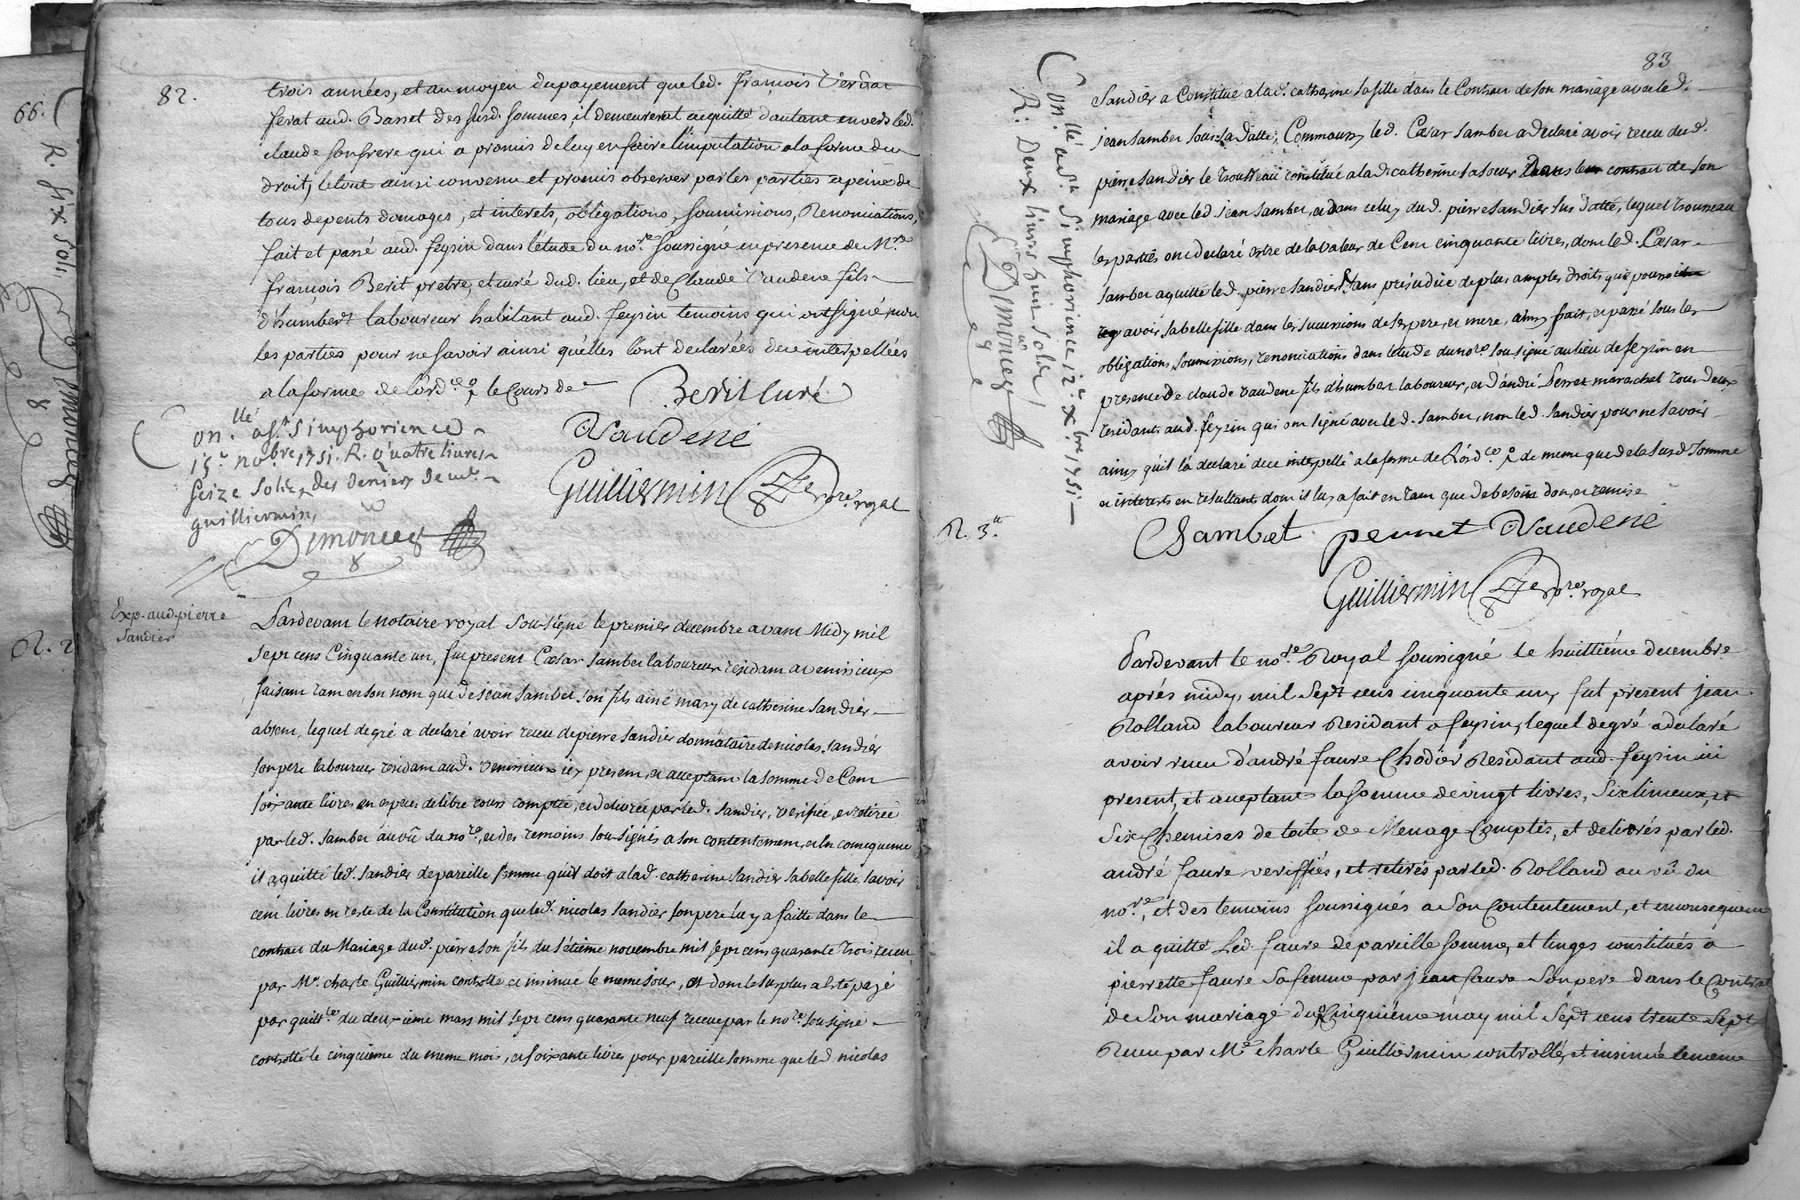 66.
R. six sols
82.
trois années, et au moyen du payement que led. francois Verdat
ferat aud. Basset des susd. sommes, il demeurerat acquitté d'autant envers led.
claude son frere qui a promis de luy en faire l'imputation a la forme du
droit, le tout ainsi convenu et promis observer par les parties a peine de
tous depents domages, et interets, obligations, soumissions, Renonciations,
fait et passé aud. feysin dans l'etude du no.re soussigné en presence de M.re
francois Berit pretre, et curé dud. lieu, et de Claude Vaudene fils
d'humbert laboureur habitant aud. feysin temoins qui ont signé non
les parties pour ne savoir ainsi qu'elles l'ont declarées de ce interpellées
a la forme de l'ord.ce le Cours de
Berit Curé
Con.llé a S.t Simphorien ce
15.e nobre 1751. R. quatre livres
seize sols, des deniers de m.e
guilliermin,
Vaudené
Guilliermin no.re royal
Demoncey
Exp. aud. pierre
Sandier
R. 2
Pardevant le notaire royal sous-signé le premier decembre avant Midy mil
sept cens Cinquante un, fut present Cæsar Sambet laboureur residant a venissieux
faisant tant en son nom que de jean Sambet son fils ainé mary de catherine Sandier
absent, lequel de gré a declaré avoir receu de pierre Sandier donnataire de nicolas Sandier
son pere laboureur residant aud. venissieux icy present, et acceptant la somme de Cent
soixante livres en especes de libre cours comptée, et delivrée par led. Sandier, verifiée, et retirée
par led. Sambet au vû du no.re, et des temoins sous-signés a son contentement, et en consequence
il a quitté led. Sandier de pareille somme qu'il doit a lad. catherine Sandier sa belle fille, savoir
cent livres en reste de la Constitution que led. nicolas Sandier son pere luy a faitte dans le
contrat du Mariage dud. pierre son fils du sétieme novembre mil sept cens quarante trois receu
par M.e charle Guilliermin controllé et insinué le meme jour, et dont le surplus a eté payé
par quitt.ce du deuxieme mars mil sept cens quarante neuf receue par le no.re sousigné
controllé le cinquieme du meme mois, et soixante livres pour pareille somme que led nicolas
83
Con.llé a S.t Simphorien ce 12.e Xbre 1751
R. Deux livres huit sols
Demoncey
Sandier a Constitué a lad. catherine sa fille dans le Contrat de son mariage avec led.
jean Sambet sous sa datte, Comm'aussy led. Cæsar Sambet a declaré avoir receu dud.
pierre Sandier le trousseau constitué a lad. catherine sa soeur dans le contrat de son
mariage avec led jean Sambet, et dans celuy dud. pierre Sandier sus datté, lequel trousseau
les parties ont declaré estre de la valeur de Cent cinquante livres, dont led. Cæsar
Sambet a quitté led. pierre Sandier, sans préjudice de plus amples droits que pourroit
avoir sa belle fille dans les successions de ses pere, et mere, ainsy fait, et passé sous les
obligations, soumissions, renonciations dans l'etude du no.re sousigné au lieu de feysin en
presence de claude vaudene fils d'humbert laboureur, et d'andré Perret marechal tous deux
residants aud. feysin qui ont signé avec led. Sambet, non led. Sandier pour ne savoir
ainsy qu'il l'a declaré de ce interpellé a la forme de l'ord.ce & de meme que de la susd. somme
et interets en resultants dont il luy a fait en tant que de besoin don, et remise
R. 3.tt
CSambet perret Vaudené
Guilliermin no.re royal
Pardevant le no.re Royal soussigné le huittiéme decembre
aprés midy, mil Sept cens cinquante un, fut present jean
Rolland laboureur Residant a feysin, lequel de gré a declaré
avoir receu d'andré faure Chodier Residant aud. feysin ici
present, et acceptant la somme de vingt livres, six linceux, et
six Chemises de toile de Menage Comptés, et delivrés par led.
andré faure veriffiés, et retirés par led. Rolland au vû du
no.re, et des temoins soussignés a son Contentement, et en consequence
il a quitté Led. faure de pareille somme, et linges constitués à
pierrette faure sa femme par jean faure son pere dans le Contrat
de son mariage du cinquiéme may mil Sept cens trente Sept
Receu par M.e charle Guilliermin controllé, et insinué le meme